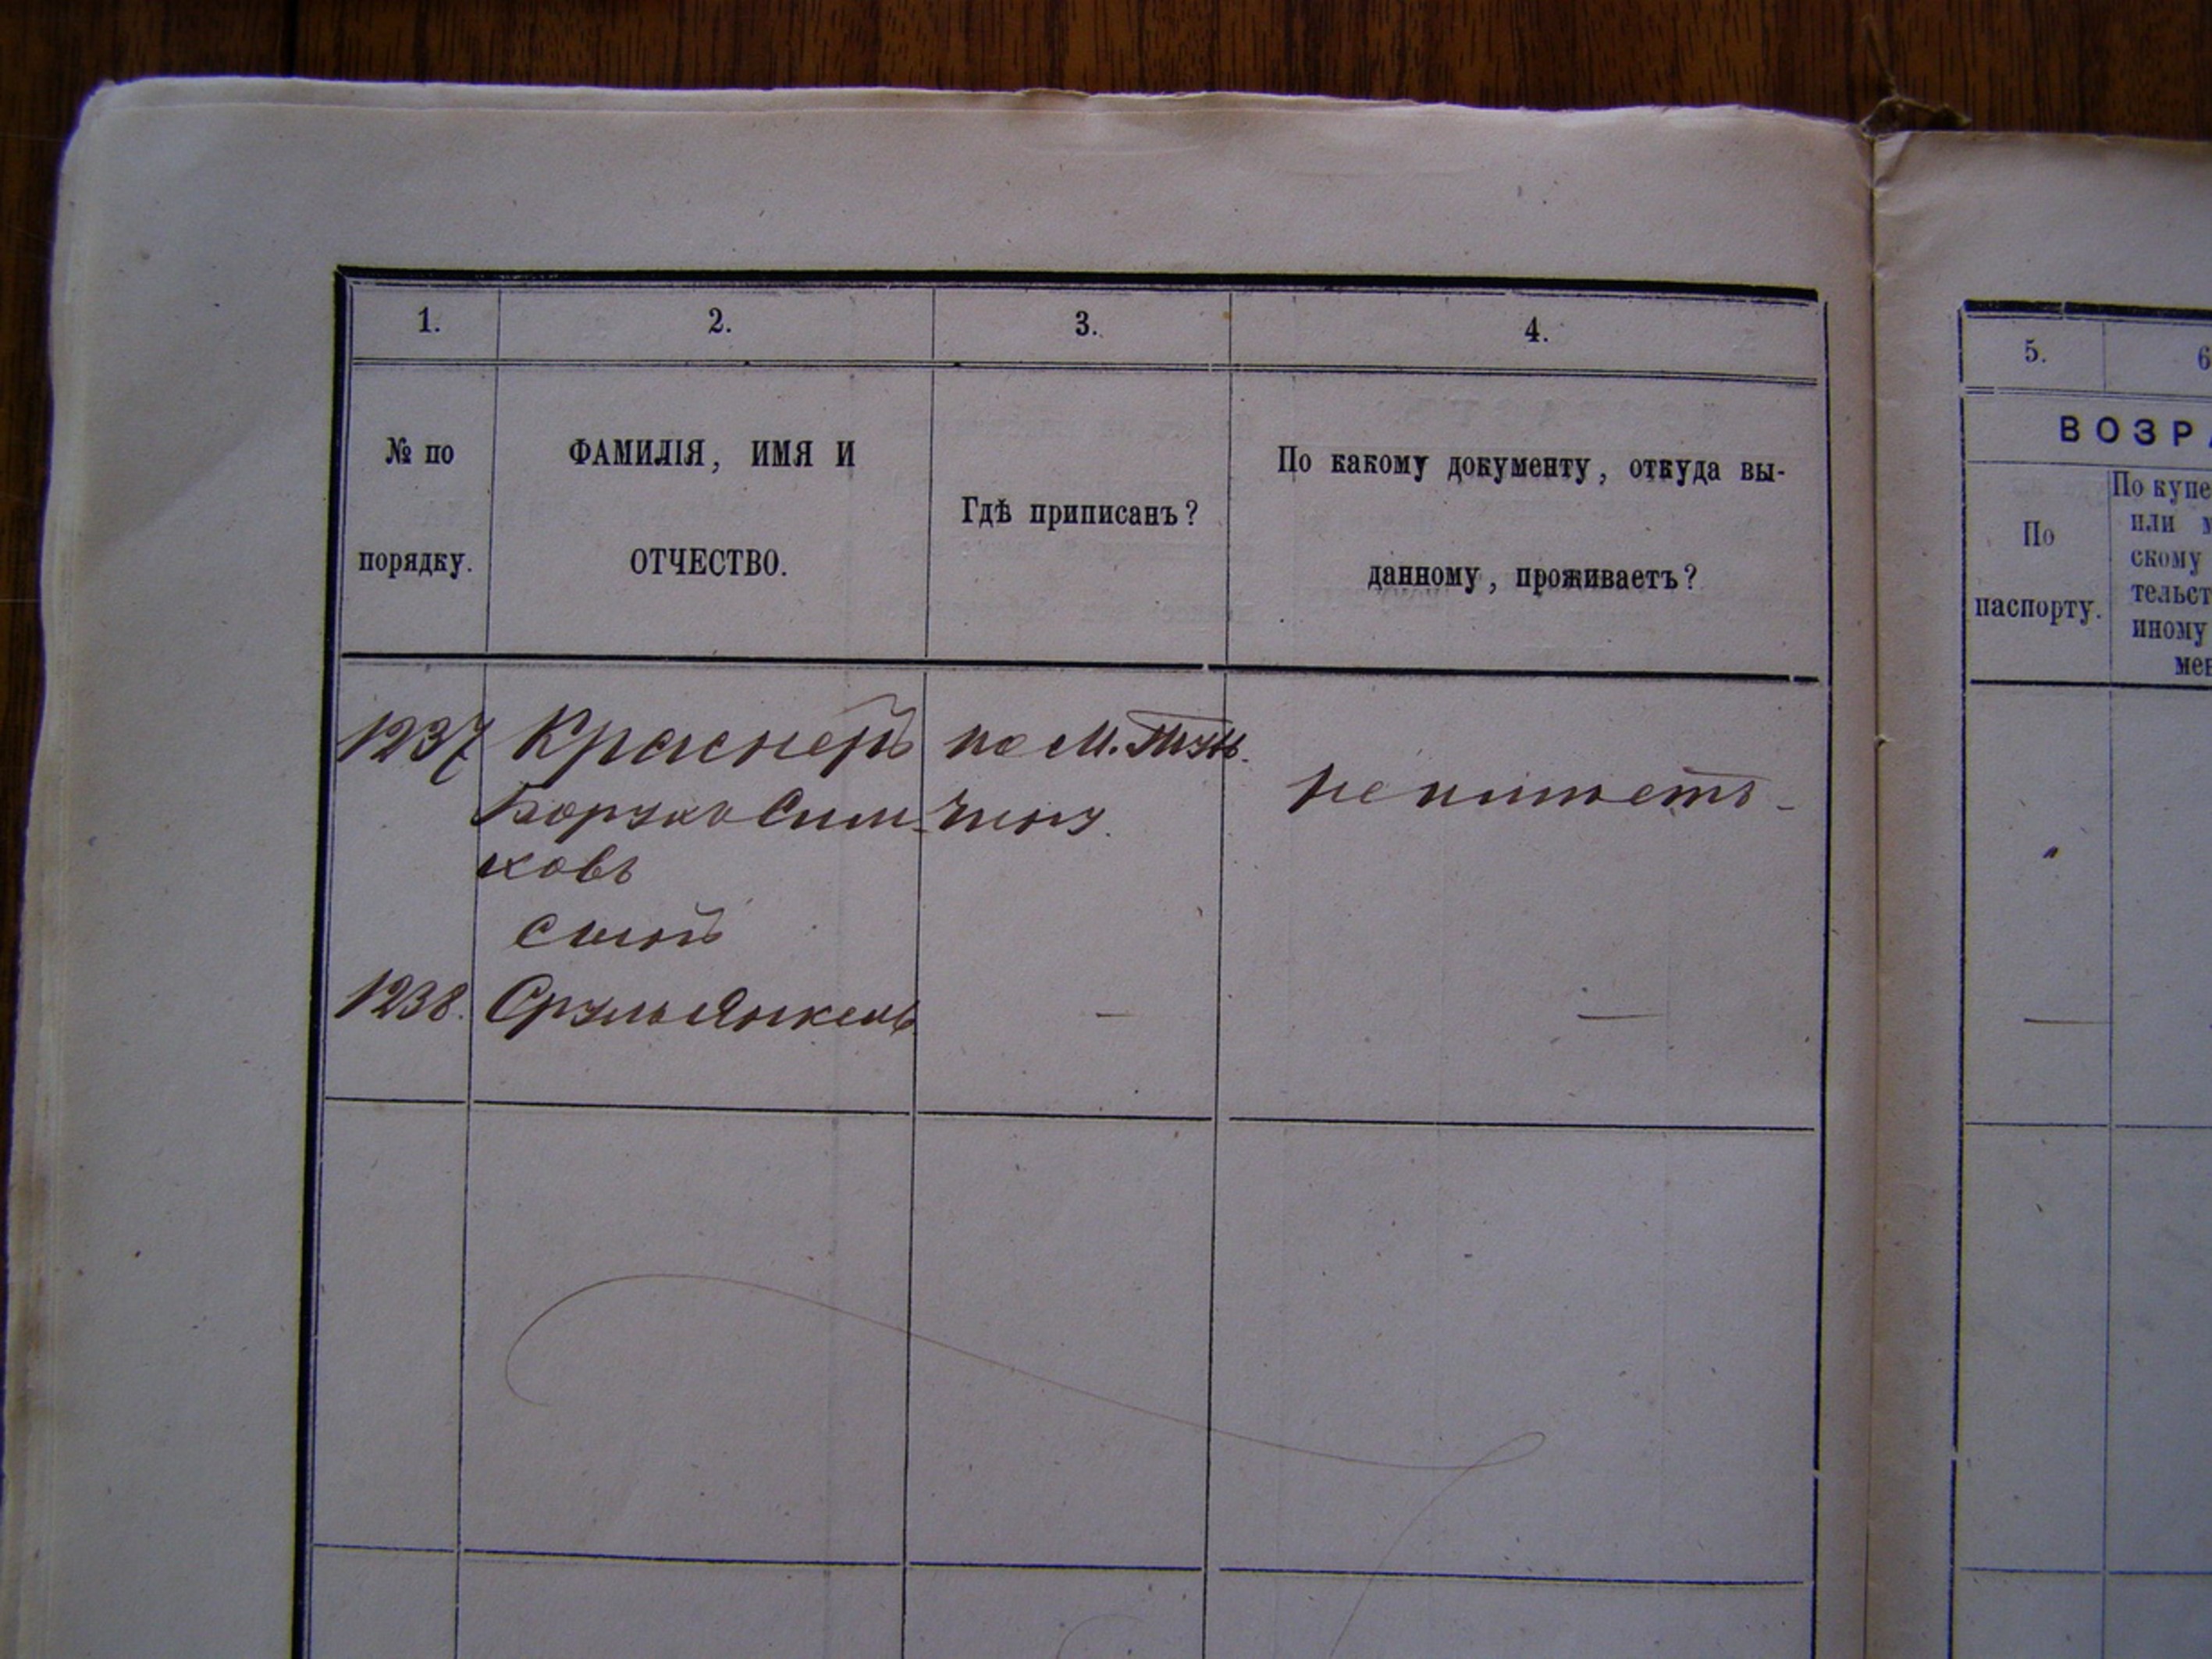 1. 2. 3. 4.
№ по порядку.
ФАМИЛІЯ, ИМЯ И
ОТЧЕСТВО.
Гдѣ приписанъ?
По какому документу, откуда вы-
данному, проживаетъ?
1237 Краснеръ по М. Тун.
Борухъ Сим- чину.
ховъ
не имѣетъ -
сынъ
1238. Сруль Янкель — —
5. 6
ВОЗРА
По
паспорту.
По купе
или м
скому
тельст
иному
мен